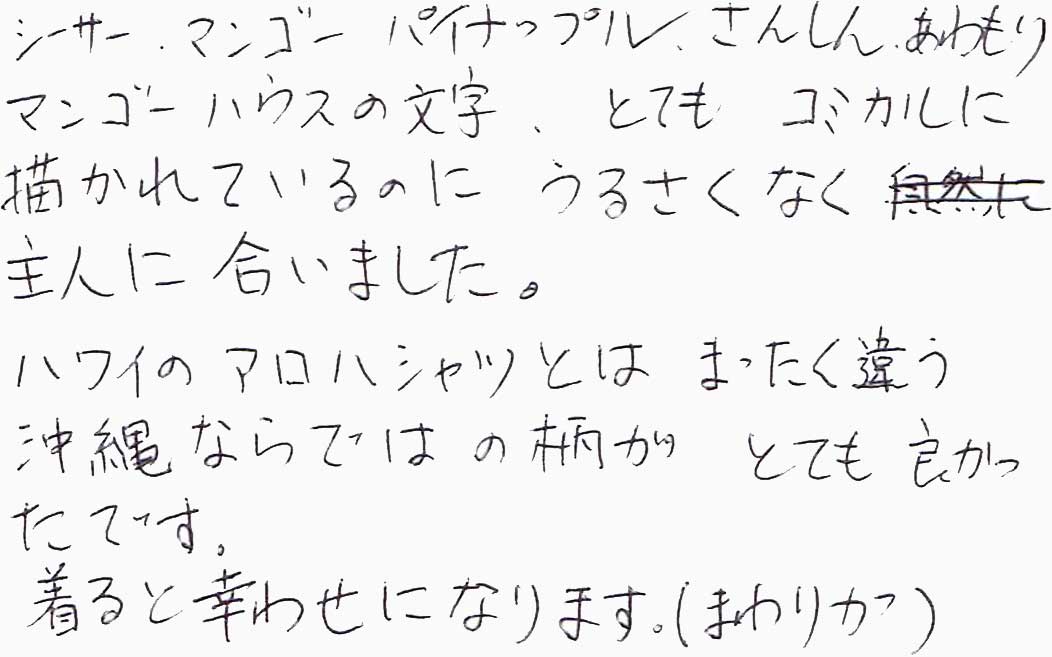 シーサー、マンゴー パイナップル、さんしん、あわもり
マンゴーハウスの文字、とても コミカルに
描かれているのに うるさくなく 自然に
主人に合いました。
ハワイのアロハシャツとは まったく違う
沖縄ならではの柄が とても良かっ
たです。
着ると幸わせになります。(まわりが)